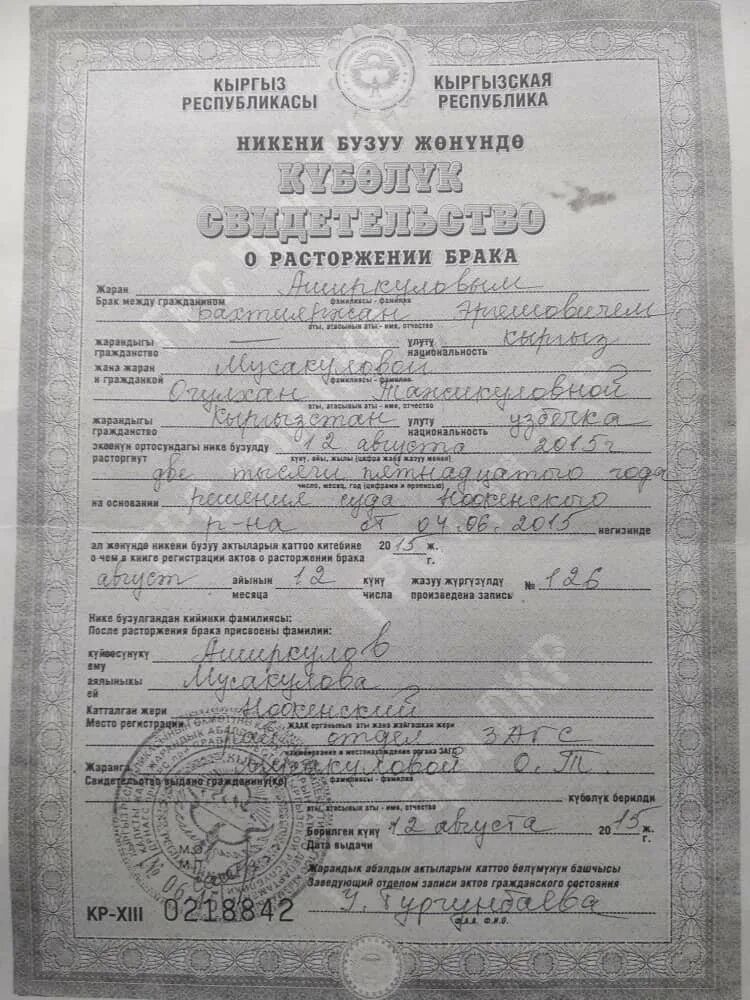 КЫРГЫЗ РЕСПУБЛИКАСЫ
КЫРГЫЗСКАЯ РЕСПУБЛИКА
НИКЕНИ БУЗУУ ЖӨНҮНДӨ
КҮБӨЛҮК
СВИДЕТЕЛЬСТВО
О РАСТОРЖЕНИИ БРАКА
Жаран
Брак между гражданином Аширкуловым
фамилиясы - фамилия
Бахтияржан Эргешовичем
аты, атасынын аты - имя, отчество
жарандыгы — улуту кыргыз
гражданство национальность
жана жаран Мусакуловой
и гражданкой фамилиясы - фамилия
Огулхан Тажикуловной
аты, атасынын аты - имя, отчество
жарандыгы Кыргызстан улуту узбечка
гражданство национальность
экөөнүн ортосундагы нике бузулду 12 августа 2015г
расторгнут күнү, айы, жылы (цифра жана жазуу менен)
две тысячи пятнадцатого года
число, месяц, год (цифрами и прописью)
на основании решения суда Ноокенского
р-на от 04.06.2015 негизинде
ал жөнүндө никени бузуу актыларын каттоо китебине 2015 ж.
о чем в книге регистрации актов о расторжении брака г.
август айынын 12 күнү жазуу жүргүзүлдү № 126
месяца числа произведена запись
Нике бузулгандан кийинки фамилиясы:
После расторжения брака присвоены фамилии:
күйөөсүнүкү Аширкулов
ему
аялыныкы Мусакулова
ей
Катталган жери Ноокенский
Место регистрации ЖААК органынын аты жана жайгашкан жери
отдел ЗАГС
наименование и местонахождение органа ЗАГС
Жаранга Мусакуловой О.Т.
Свидетельство выдано гражданину(ке) фамилиясы - фамилия
күбөлүк берилди
аты, атасынын аты - имя, отчество
Берилген күнү 12 августа 2015 ж.
Дата выдачи г.
М.О.
М.П.
Жарандык абалдын актыларын каттоо бөлүмүнүн башчысы
Заведующий отделом записи актов гражданского состояния
У. Тургунбаева
Ф.А.А. Ф.И.О.
КР-XIII 0218842